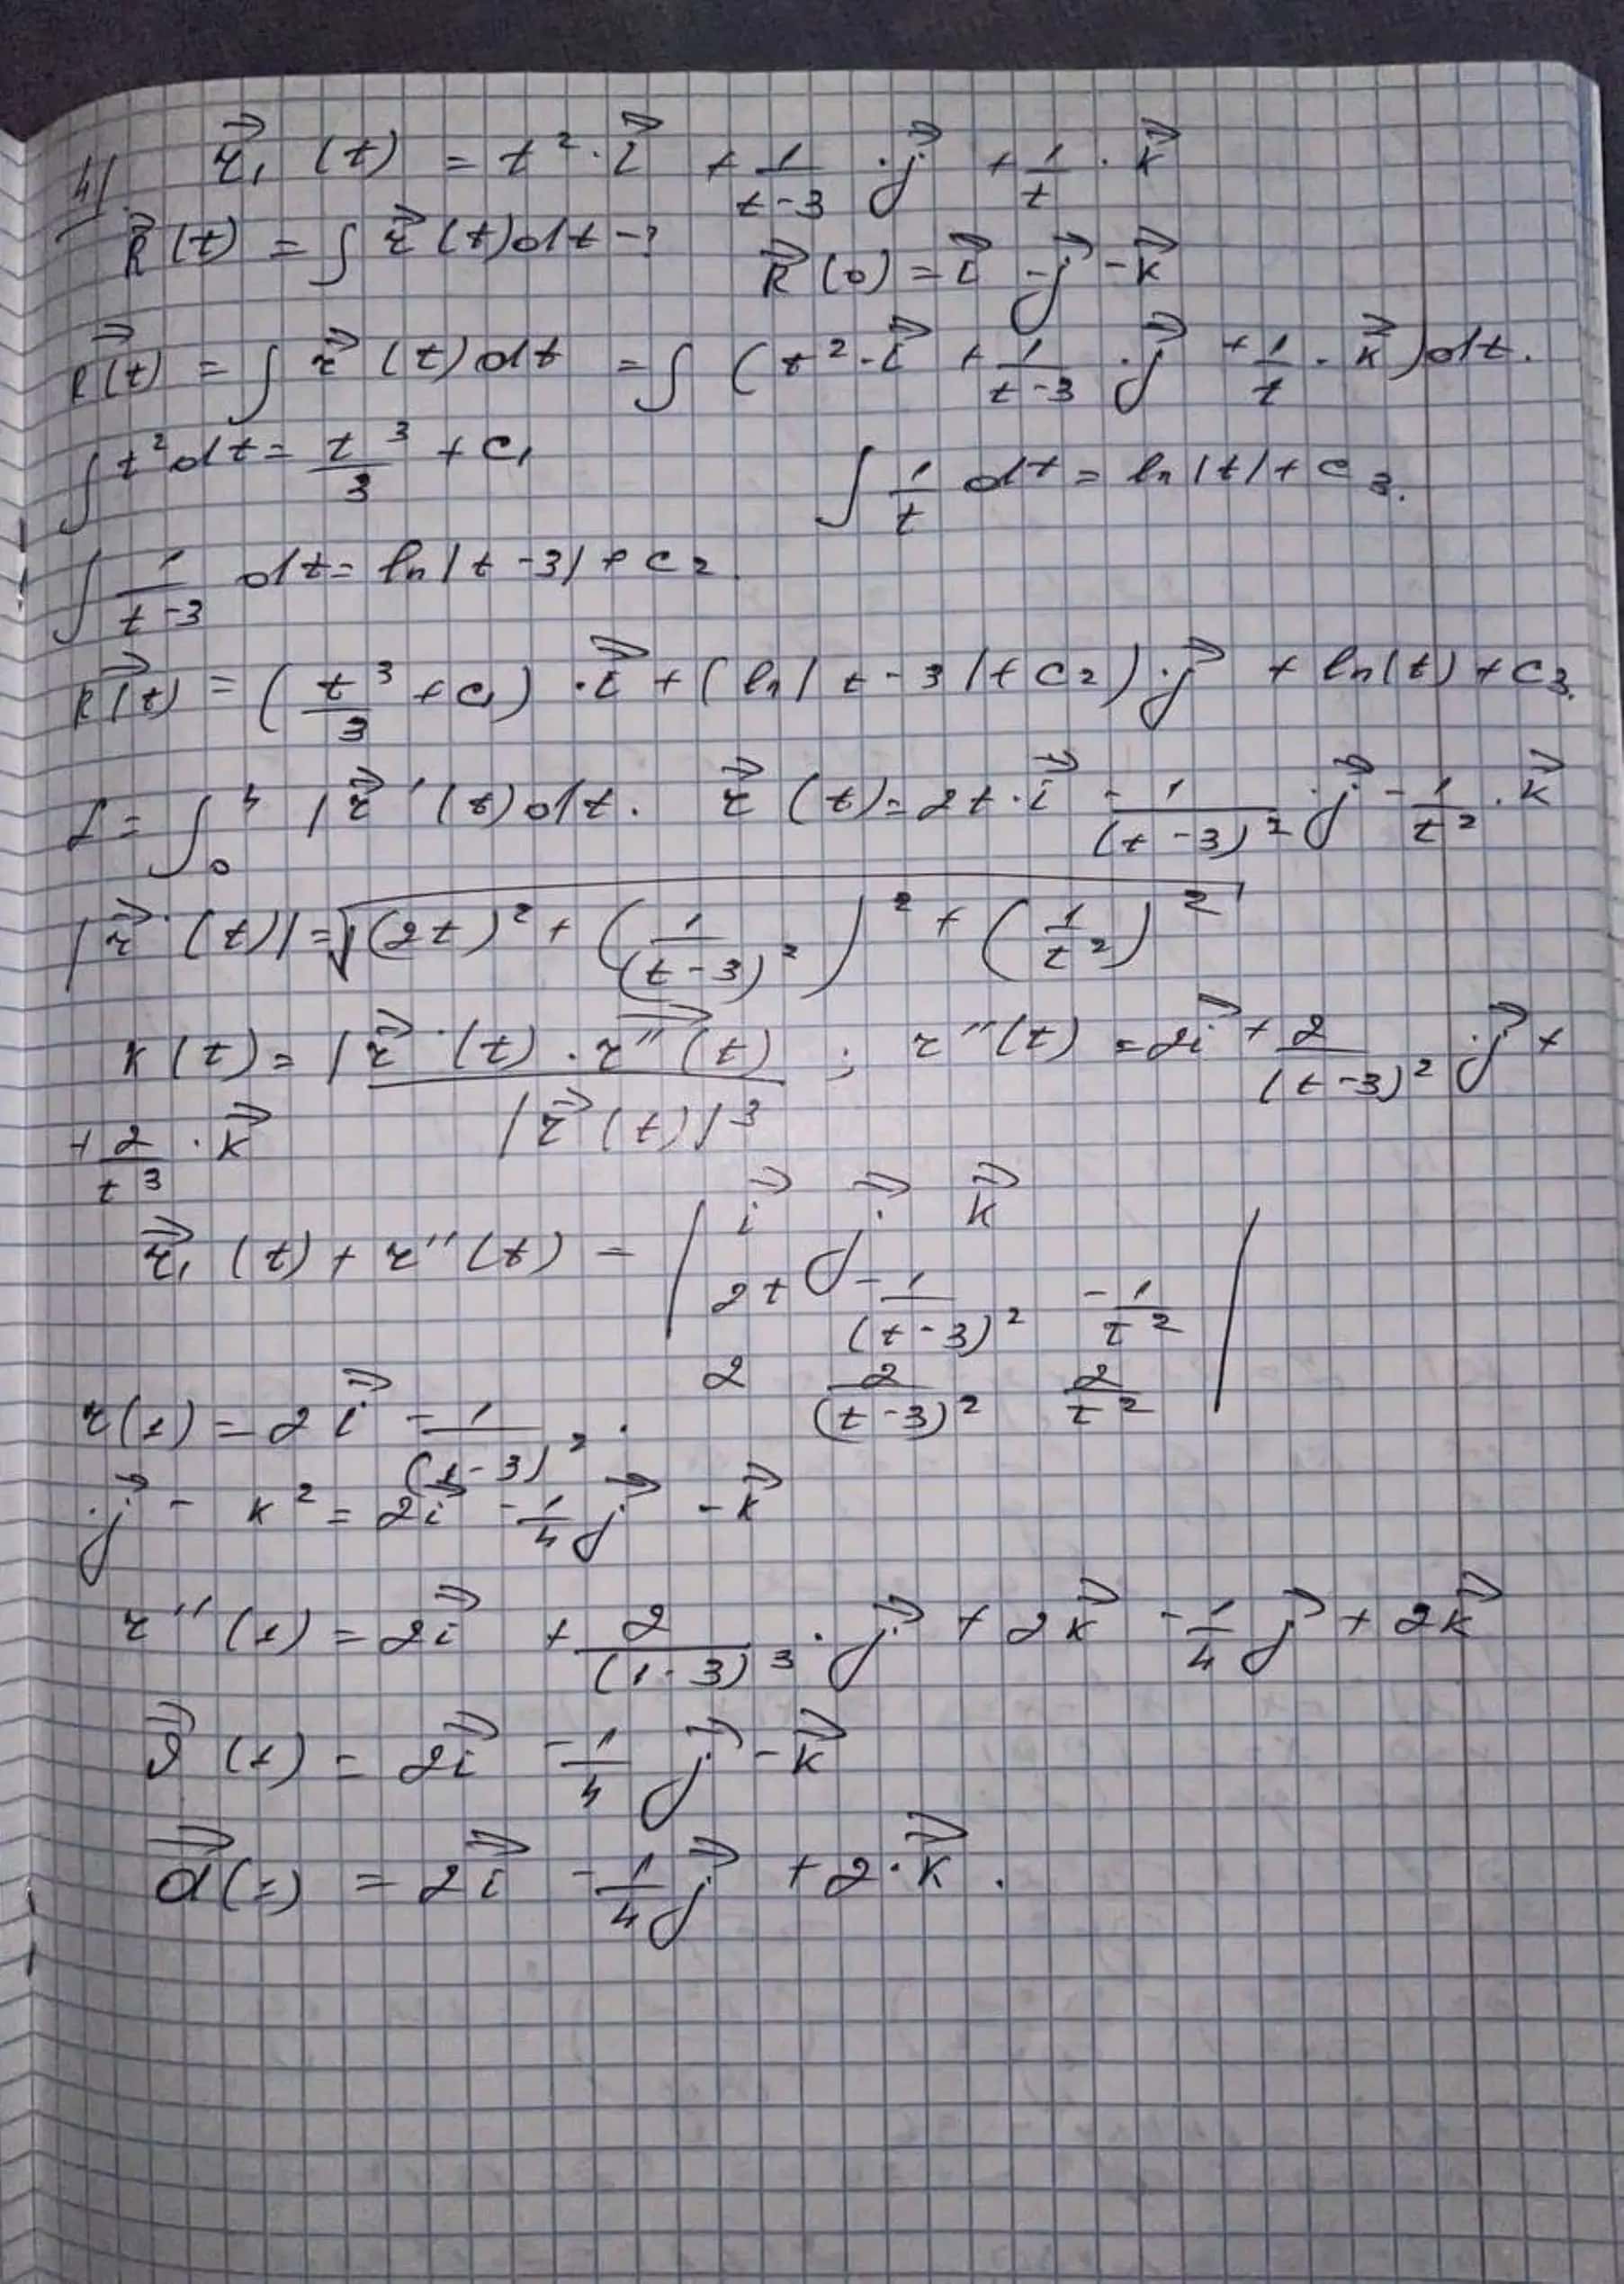 4) r⃗₁ (t) = t² · i⃗ + 1/(t-3) · j⃗ + 1/t · k⃗
R⃗(t) = ∫ r⃗(t)dt -? R⃗(0) = i⃗ - j⃗ - k⃗
R⃗(t) = ∫ r⃗ (t)dt = ∫ (t² · i⃗ + 1/(t-3) · j⃗ + 1/t · k⃗)dt.
∫ t²dt = t³/3 + C₁ ∫ 1/t dt = ln|t| + C₃.
∫ 1/(t-3) dt = ln|t-3| + C₂
R⃗(t) = (t³/3 + C₁) · i⃗ + (ln|t-3| + C₂) · j⃗ + ln(t) + C₃.
L = ∫₀⁴ |r⃗'(t)dt. r⃗ (t) = 2t · i⃗ - 1/(t-3)² · j⃗ - 1/t² · k⃗
|r⃗'(t)| = √((2t)² + (1/(t-3)²)² + (1/t²)²)
K(t) = |r⃗'(t) · r⃗''(t) / |r⃗(t)|³ ; r''(t) = 2i⃗ + 2/(t-3)² j⃗ +
+ 2/t³ · k⃗
r⃗₁ (t) + r''(t) = | i⃗ j⃗ k⃗
2t -1/(t-3)² -1/t² |
2 2/(t-3)² 2/t²
r(1) = 2i⃗ - 1/(1-3)² ·
· j⃗ - k² = 2i⃗ - 1/4 j⃗ - k⃗
r''(1) = 2i⃗ + 2/(1-3)³ · j⃗ + 2k⃗ - 1/4 j⃗ + 2k⃗
ϑ⃗ (1) = 2i⃗ - 1/4 j⃗ - k⃗
a⃗(=) = 2i⃗ - 1/4 j⃗ + 2 · k⃗.